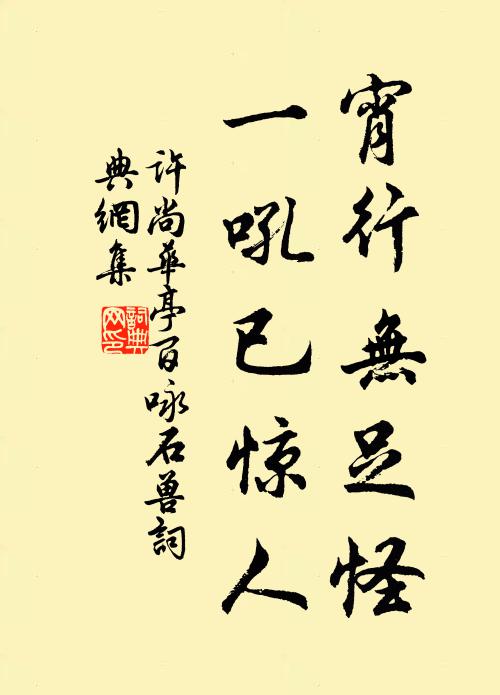 宵行無足怪
一吼已惊人
許尚華亭百咏石兽詞
典網集
詞典
网印